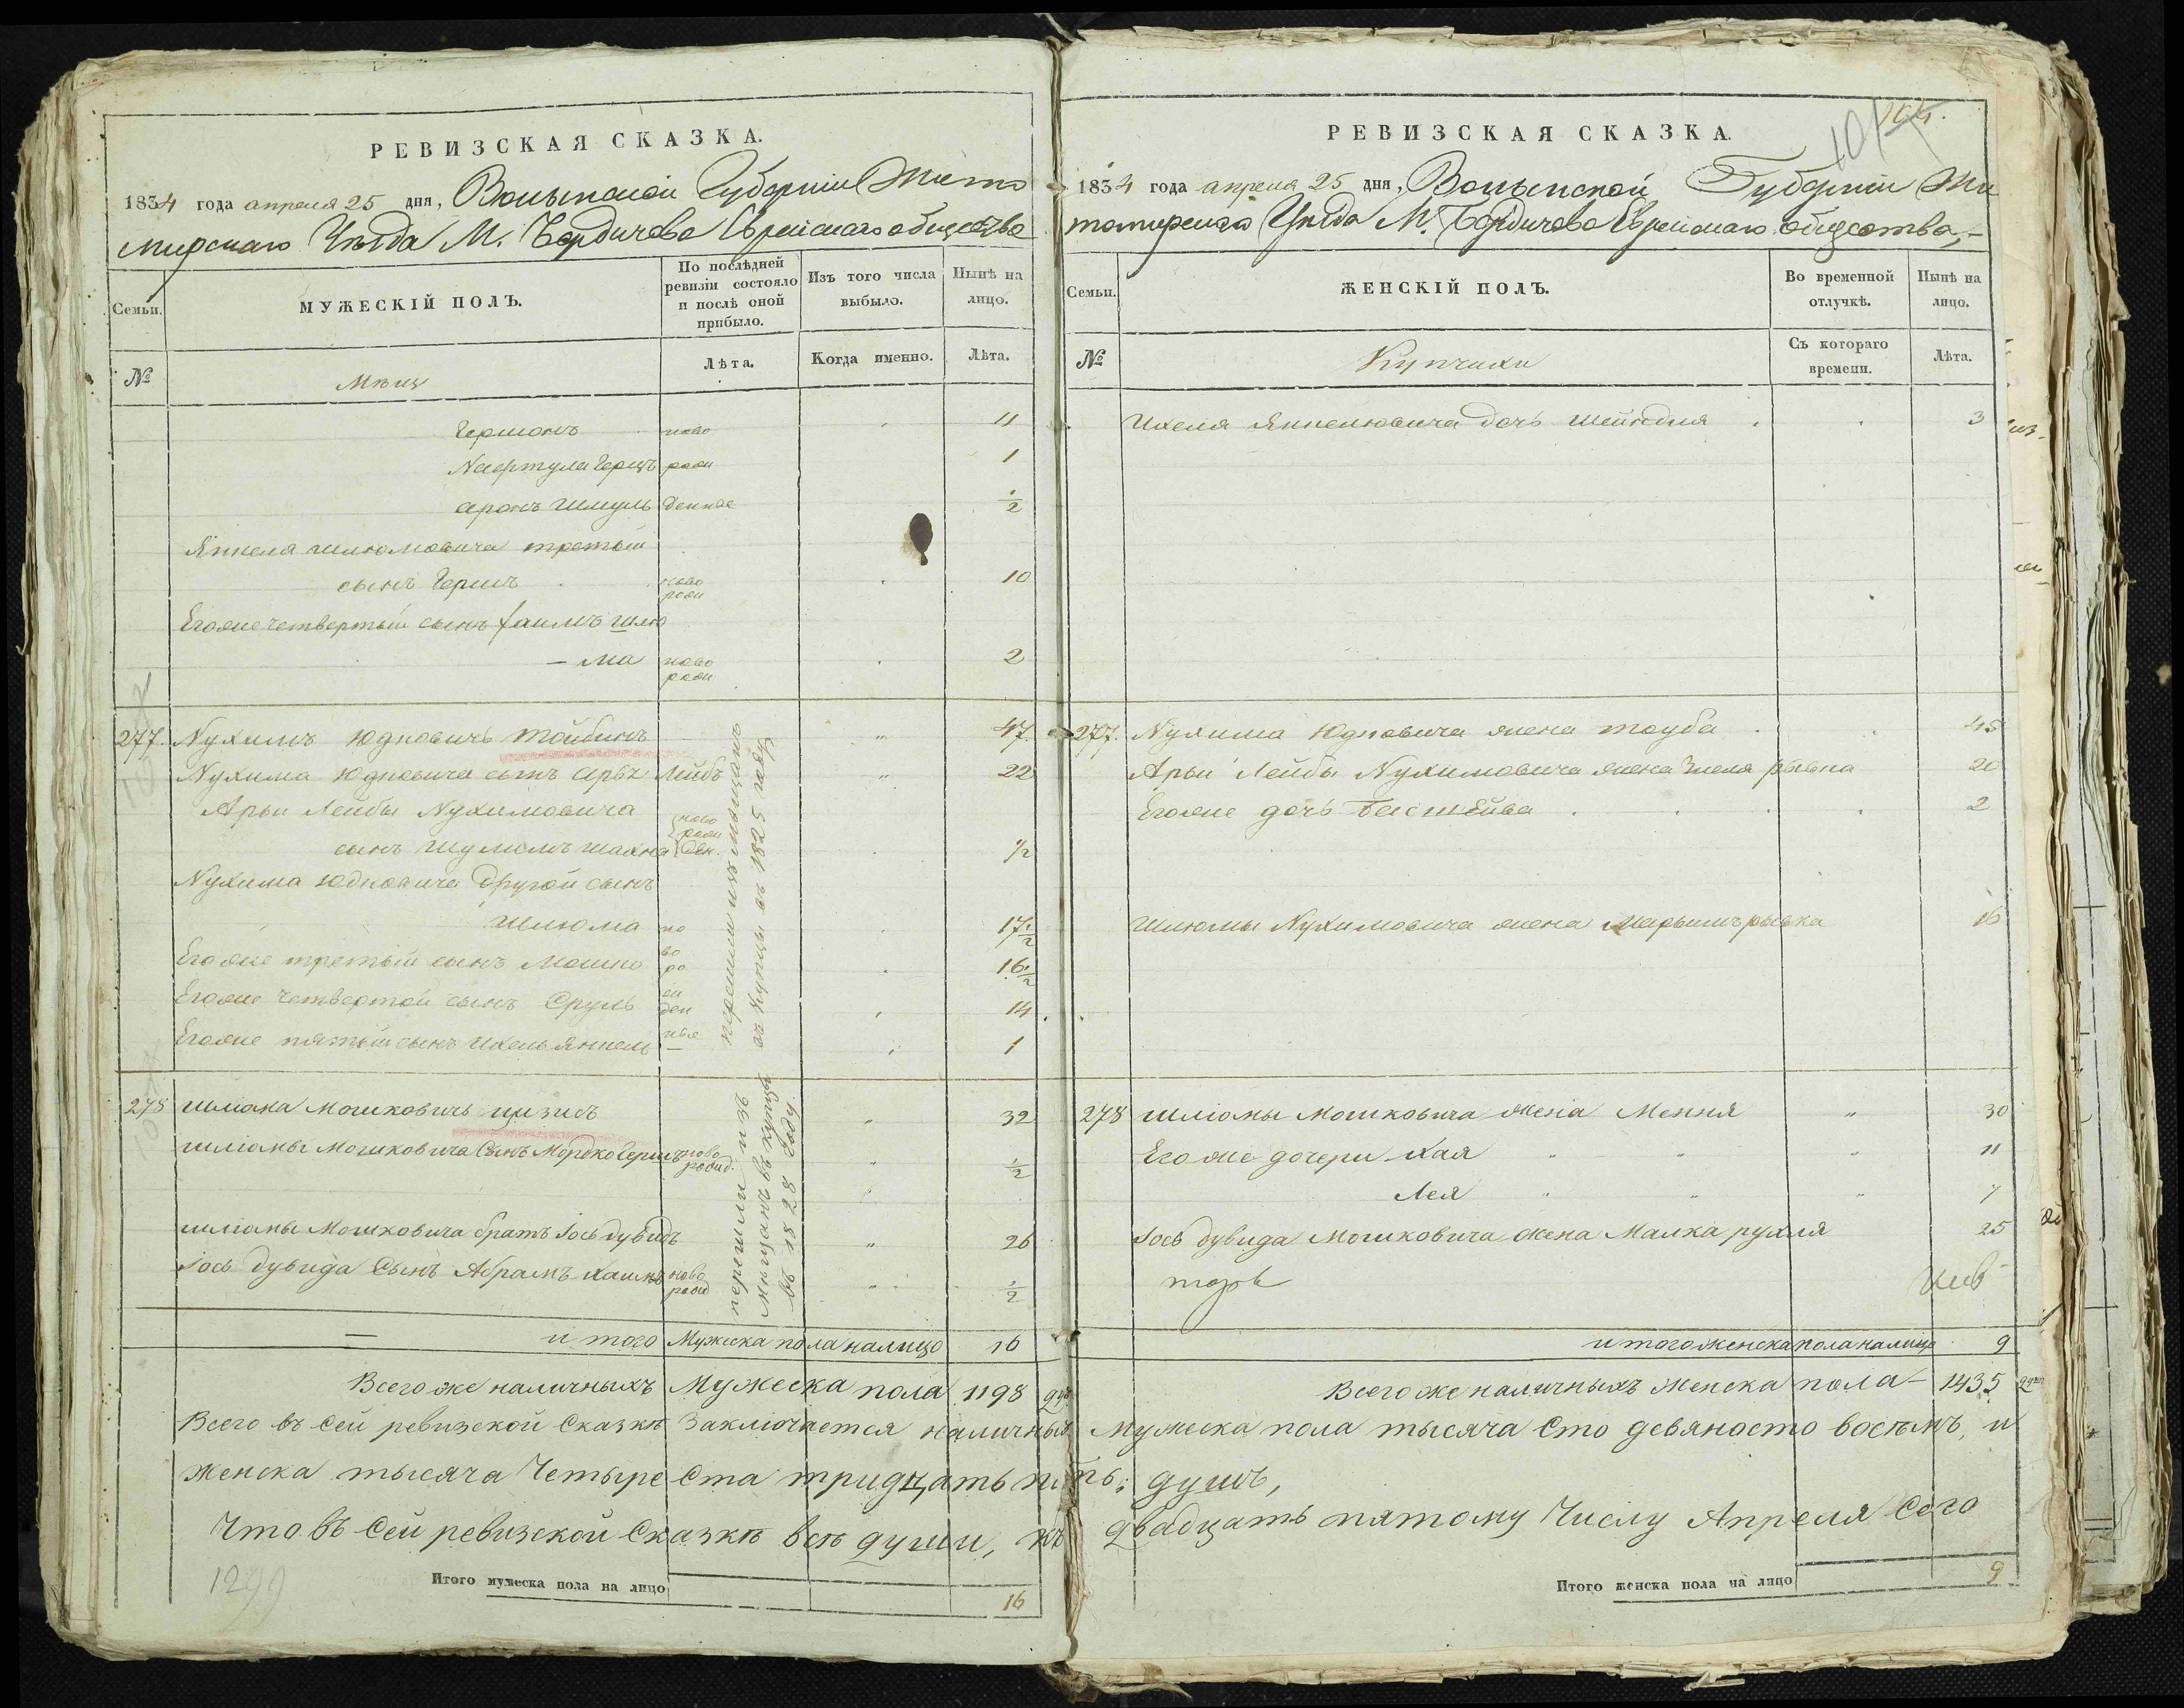 РЕВИЗСКАЯ СКАЗКА.
1834 года апреля 25 дня, Волынской Губернии Жито
мирскаго Уѣзда М. Бердичева Еврейскаго общества
Семьи.
МУЖЕСКІЙ ПОЛЪ.
По послѣдней ревизіи состояло и послѣ оной прибыло.
Изъ того числа выбыло.
Нынѣ на лицо.
№
Лѣта.
Когда именно.
Лѣта.
Гершонъ ново 11
Нафтула Герцъ рожи 1
аронъ Шмуль денные 1/2
Янкеля Шлюмовича третій
сынъ Герш ново рожи 10
Егоже четвертый сынъ Хаимъ Шлю
– ма ново рожи 2
277. Нухимъ Юдковичъ Тойбинъ " 47
Нухима Юдковича сынъ Арье Лейбъ " 22
Арьи Лейбы Нухимовича
сынъ Шулимъ Шахна ново рожи ден. 1/2
Нухима Юдковича другой сынъ
Шлюма но 17 1/2
Егоже третій сынъ Мошко во ро 16 1/2
Егоже четвертой сынъ Сруль жи ден 14
Егоже пятый сынъ Ихель Янкель ные 1
перешли изъ мѣщанъ
въ купцы въ 1825 году
278 Шліома Мошковичъ " 32
Шліомы Мошковича Сынъ Мордко Герш ново рожд. " 1/2
Шліомы Мошковича братъ Іось дувидъ " 26
Іось дувида Сынъ Абрамъ Хаимъ ново рожд " 1/2
перешли изъ
мѣщанъ въ купцы
въ 1828 году.
— и того Мужеска пола налицо 16
Всего же наличныхъ Мужеска пола 1198 душ
Всего въ Сей ревизской Сказкѣ Заключается наличныхъ Мужеска пола тысяча Сто девяносто восѣмъ, и
женска тысяча Четыре Ста тридцать пять; душъ,
Что въ Сей ревизской Сказкѣ всѣ души, къ двадцать пятому Числу Апреля Сего
1299
Итого мужеска пола на лицо 16
РЕВИЗСКАЯ СКАЗКА.
1834 года апреля 25 дня, Волынской Губернии Жи
томирскаго Уѣзда М. Бердичева Еврейскаго общества,–
Семьи.
ЖЕНСКІЙ ПОЛЪ.
Во временной отлучкѣ.
Нынѣ на лицо.
№
Купчихи
Съ котораго времени.
Лѣта.
Ихеля Янкелювича дочь 3
277. Нухима Юдковича жена Тауба 45
Арьи Лейбы Нухимовича жена рывка 20
Егоже дочь Басшейва 2
Шлюмы Нухимовича жена рывка 16
278 Шліомы Мошковича жена Мення " 30
Егоже дочери Хая " " " 11
Лея " " " 7
Іось дувида Мошковича жена Малка рухля 25
и того женска пола налицо 9
Всего же наличныхъ женска пола – 1435 душ
Итого женска пола на лицо 9